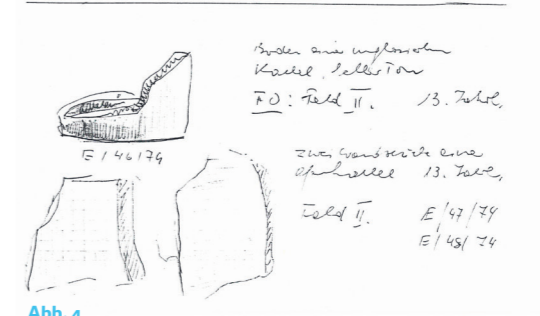 Boden eine unglasierten
Kachel, heller Ton
FO: Feld II. 13. Jahrh.
E/46/74
zwei Wandstücke eine
Ofenkachel 13. Jahrh.
Feld II. E/47/74
E/48/74
Abb. 4